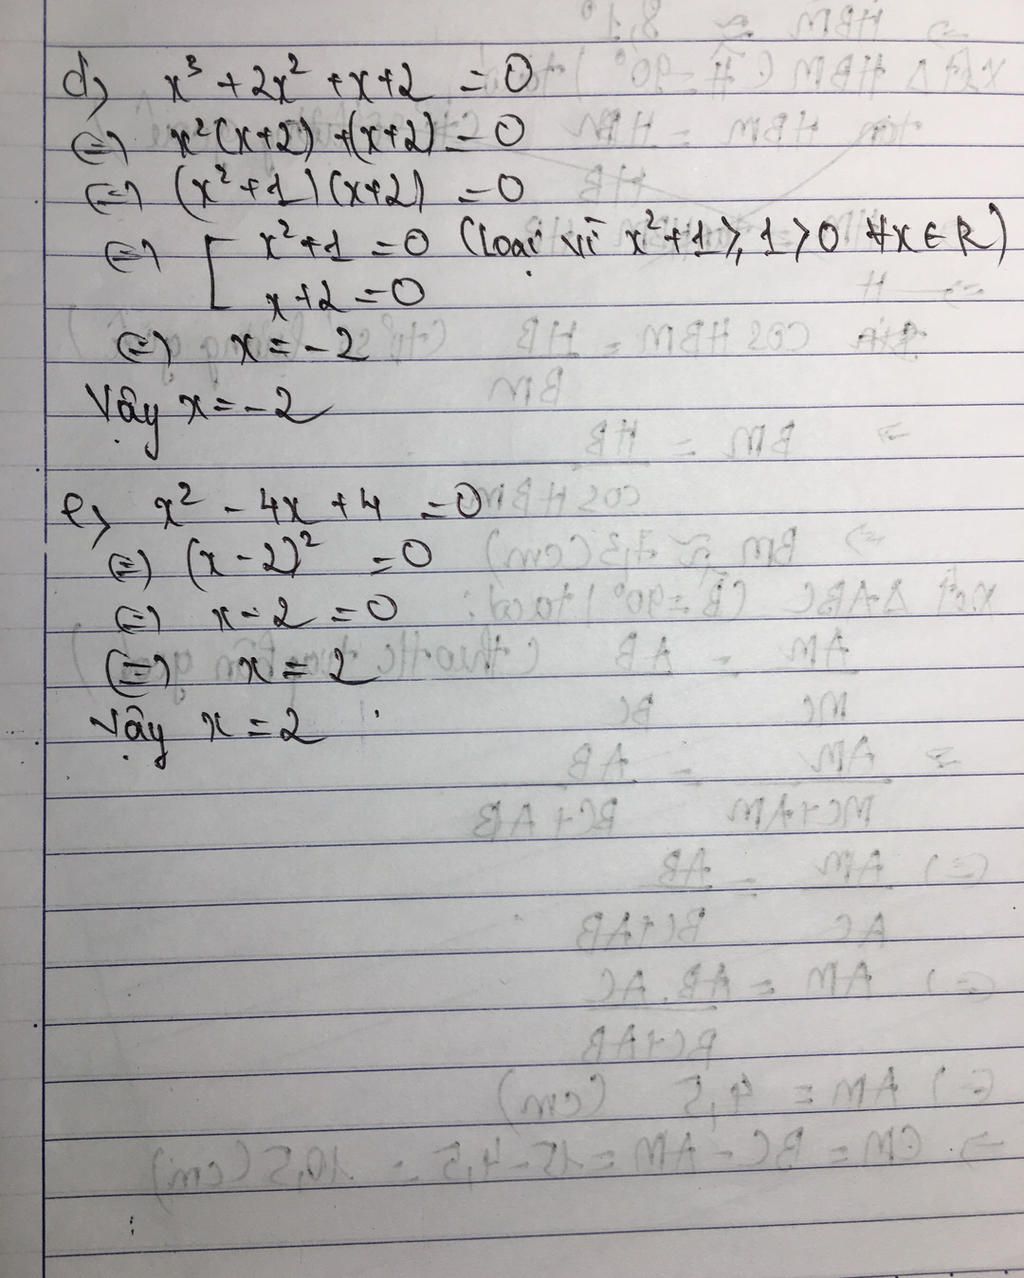 d) x³ + 2x² + x + 2 = 0
⇔ x²(x+2) + (x+2) = 0
⇔ (x² + 1)(x+2) = 0
⇔ [ x² + 1 = 0 (Loại vì x² + 1 ≥ 1 > 0 ∀x ∈ R)
x + 2 = 0
⇔ x = -2
Vậy x = -2
e) x² - 4x + 4 = 0
⇔ (x - 2)² = 0
⇔ x - 2 = 0
⇔ x = 2
Vậy x = 2